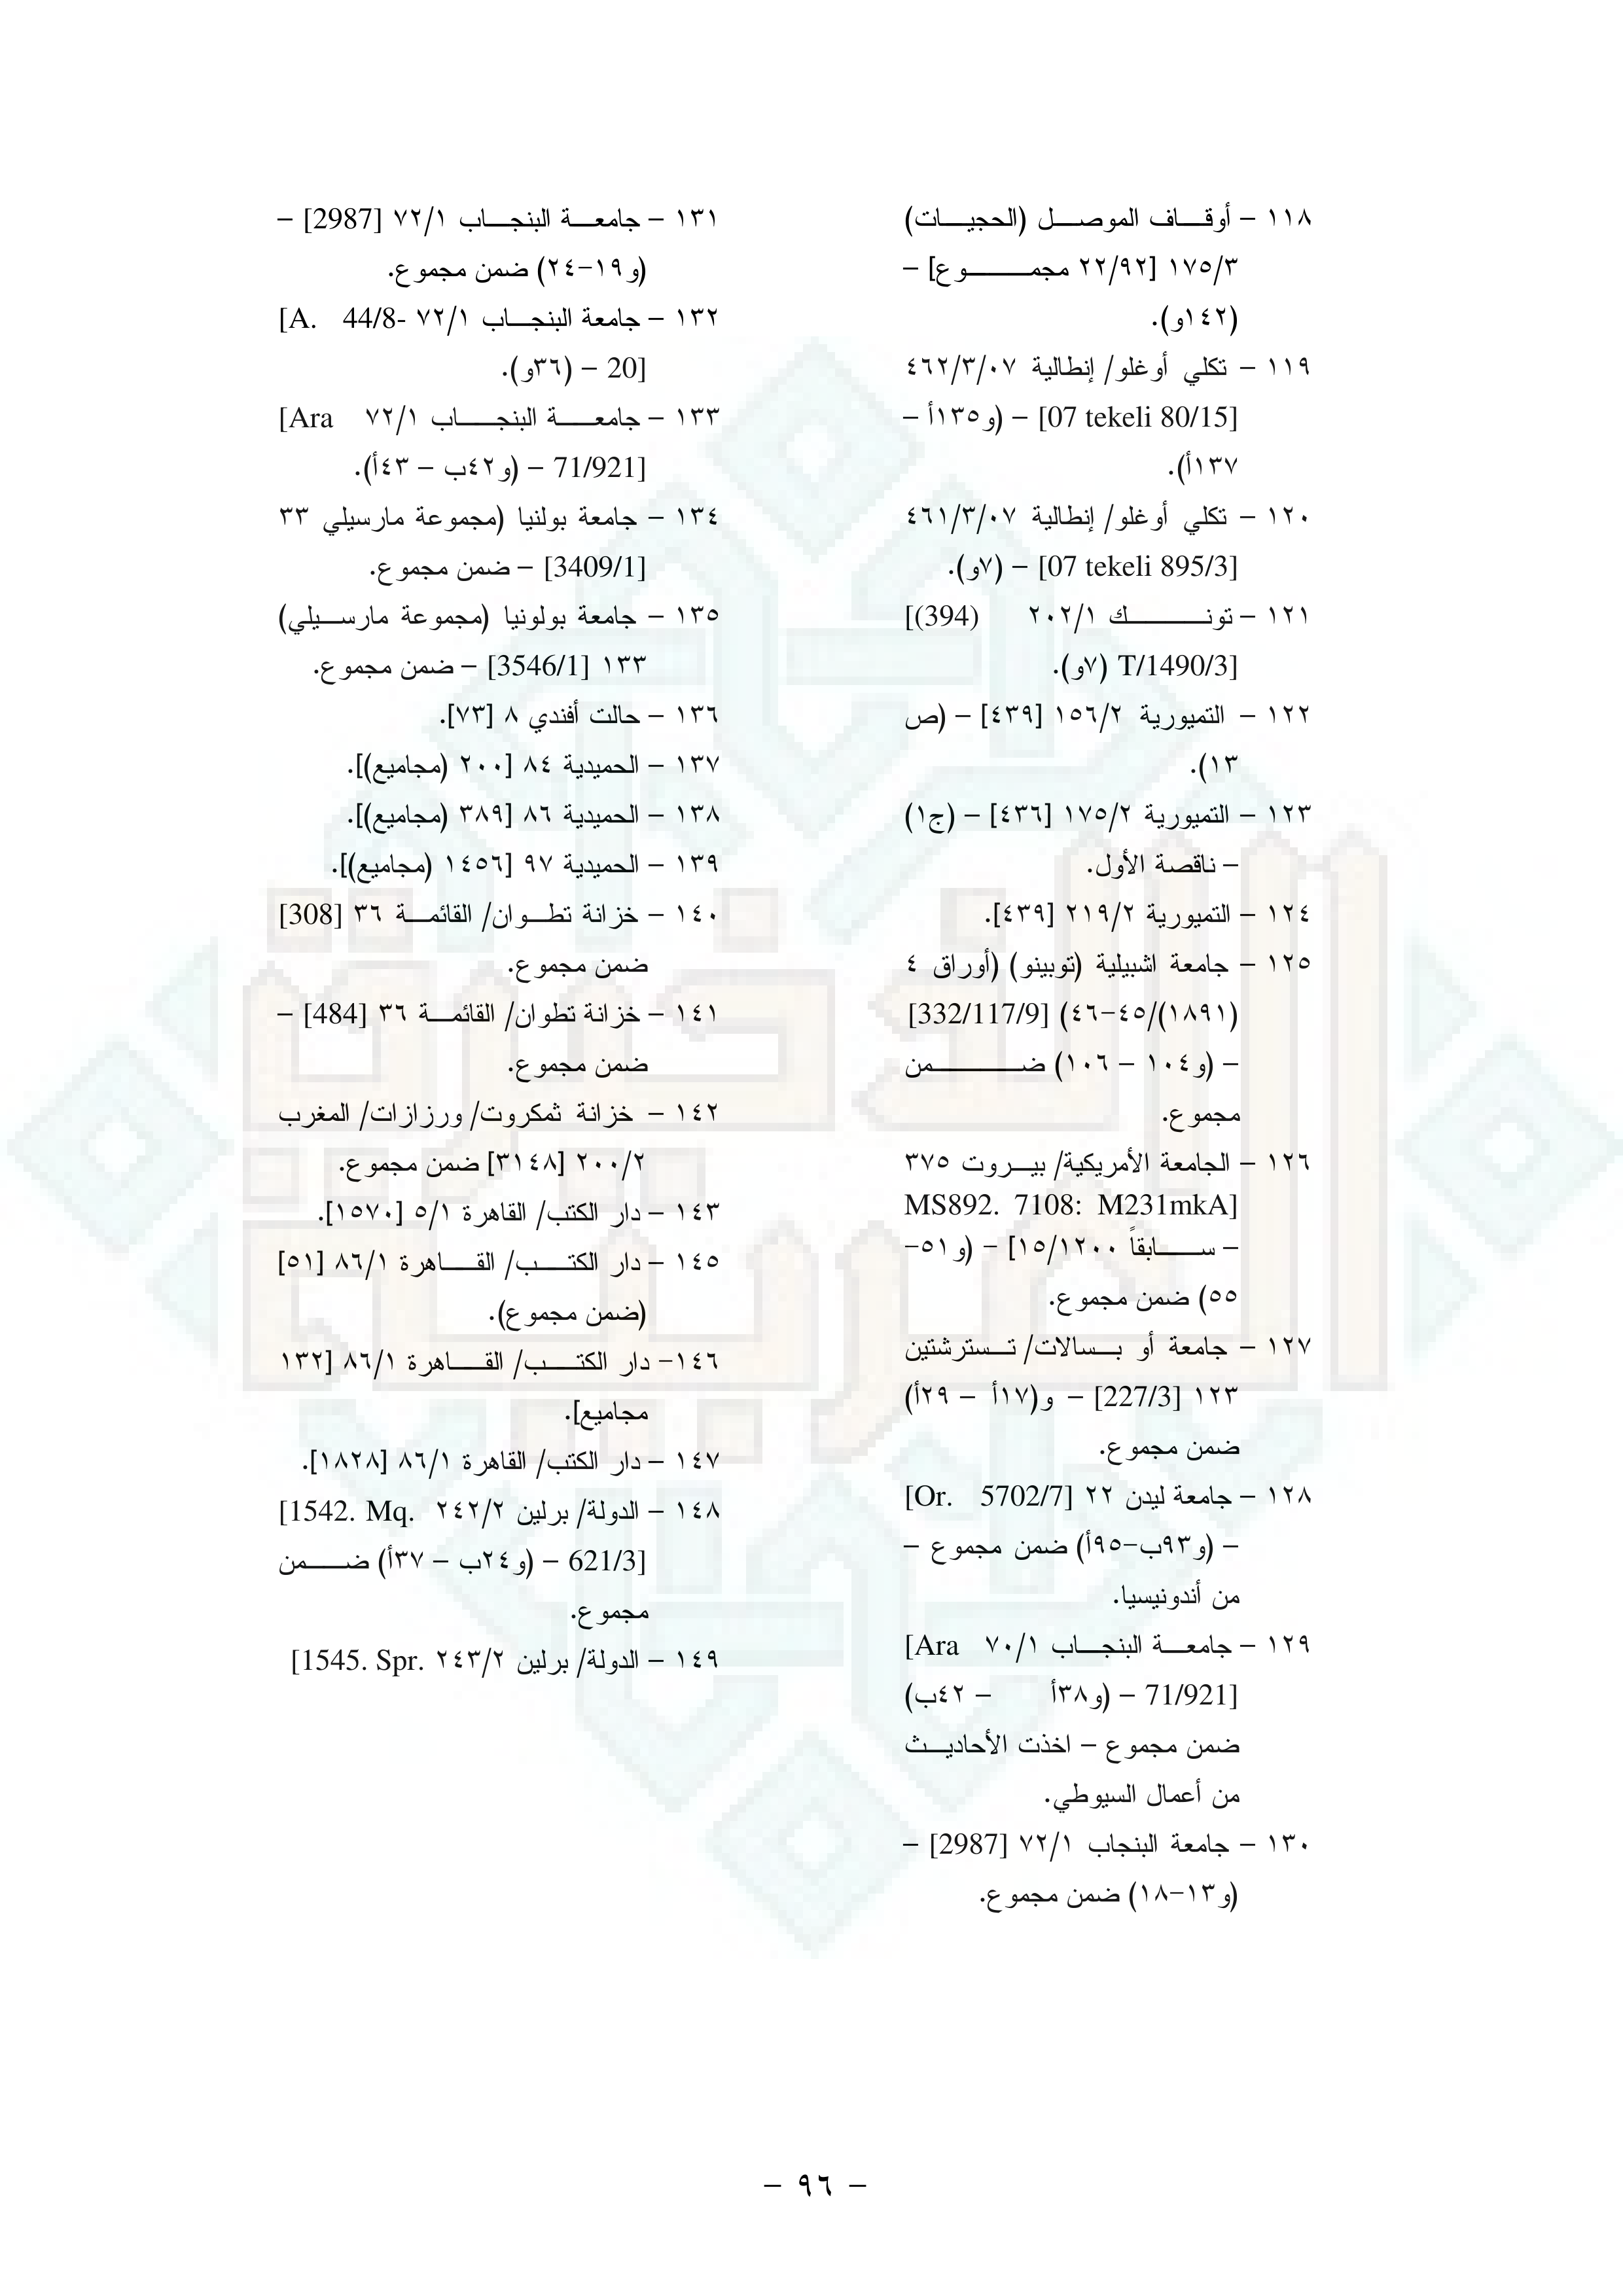 ١١٨ – أوقاف الموصل (الحجيات)
١٧٥/٣ [٢٢/٩٢ مجموع] –
(١٤٢و).
١١٩ – تكلي أوغلو/ إنطالية ٤٦٢/٣/٠٧
[07 tekeli 80/15] – (و١٣٥أ –
١٣٧أ).
١٢٠ – تكلي أوغلو/ إنطالية ٤٦١/٣/٠٧
[07 tekeli 895/3] – (٧و).
١٢١ – تونك ٢٠٢/١ [(394)
T/1490/3] (٧و).
١٢٢ – التميورية ١٥٦/٢ [٤٣٩] – (ص
١٣).
١٢٣ – التميورية ١٧٥/٢ [٤٣٦] – (ج١)
– ناقصة الأول.
١٢٤ – التميورية ٢١٩/٢ [٤٣٩].
١٢٥ – جامعة اشبيلية (توبينو) (أوراق ٤
(١٨٩١)/٤٥-٤٦) [332/117/9]
– (و١٠٤ – ١٠٦) ضمن
مجموع.
١٢٦ – الجامعة الأمريكية/ بيروت ٣٧٥
[MS892. 7108: M231mkA
– سابقاً ١٥/١٢٠٠] – (و٥١-
٥٥) ضمن مجموع.
١٢٧ – جامعة أو بسالات/ تسترشتين
١٢٣ [227/3] – و(١٧أ – ٢٩أ)
ضمن مجموع.
١٢٨ – جامعة ليدن ٢٢ [Or. 5702/7]
– (و٩٣ب-٩٥أ) ضمن مجموع –
من أندونيسيا.
١٢٩ – جامعة البنجاب ٧٠/١ [Ara
71/921] – (و٣٨أ – ٤٢ب)
ضمن مجموع – اخذت الأحاديث
من أعمال السيوطي.
١٣٠ – جامعة البنجاب ٧٢/١ [2987] –
(و١٣-١٨) ضمن مجموع.
١٣١ – جامعة البنجاب ٧٢/١ [2987] –
(و١٩-٢٤) ضمن مجموع.
١٣٢ – جامعة البنجاب ٧٢/١ [A. 44/8-
20] – (٣٦و).
١٣٣ – جامعة البنجاب ٧٢/١ [Ara
71/921] – (و٤٢ب – ٤٣أ).
١٣٤ – جامعة بولنيا (مجموعة مارسيلي ٣٣
[3409/1] – ضمن مجموع.
١٣٥ – جامعة بولونيا (مجموعة مارسيلي)
١٣٣ [3546/1] – ضمن مجموع.
١٣٦ – حالت أفندي ٨ [٧٣].
١٣٧ – الحميدية ٨٤ [٢٠٠ (مجاميع)].
١٣٨ – الحميدية ٨٦ [٣٨٩ (مجاميع)].
١٣٩ – الحميدية ٩٧ [١٤٥٦ (مجاميع)].
١٤٠ – خزانة تطوان/ القائمة ٣٦ [308]
ضمن مجموع.
١٤١ – خزانة تطوان/ القائمة ٣٦ [484] –
ضمن مجموع.
١٤٢ – خزانة ثمكروت/ ورزازات/ المغرب
٢٠٠/٢ [٣١٤٨] ضمن مجموع.
١٤٣ – دار الكتب/ القاهرة ٥/١ [١٥٧٠].
١٤٥ – دار الكتب/ القاهرة ٨٦/١ [٥١]
(ضمن مجموع).
١٤٦- دار الكتب/ القاهرة ٨٦/١ [١٣٢
مجاميع].
١٤٧ – دار الكتب/ القاهرة ٨٦/١ [١٨٢٨].
١٤٨ – الدولة/ برلين ٢٤٢/٢ [1542. Mq.
621/3] – (و٢٤ب – ٣٧أ) ضمن
مجموع.
١٤٩ – الدولة/ برلين ٢٤٣/٢ [1545. Spr.
– ٩٦ –